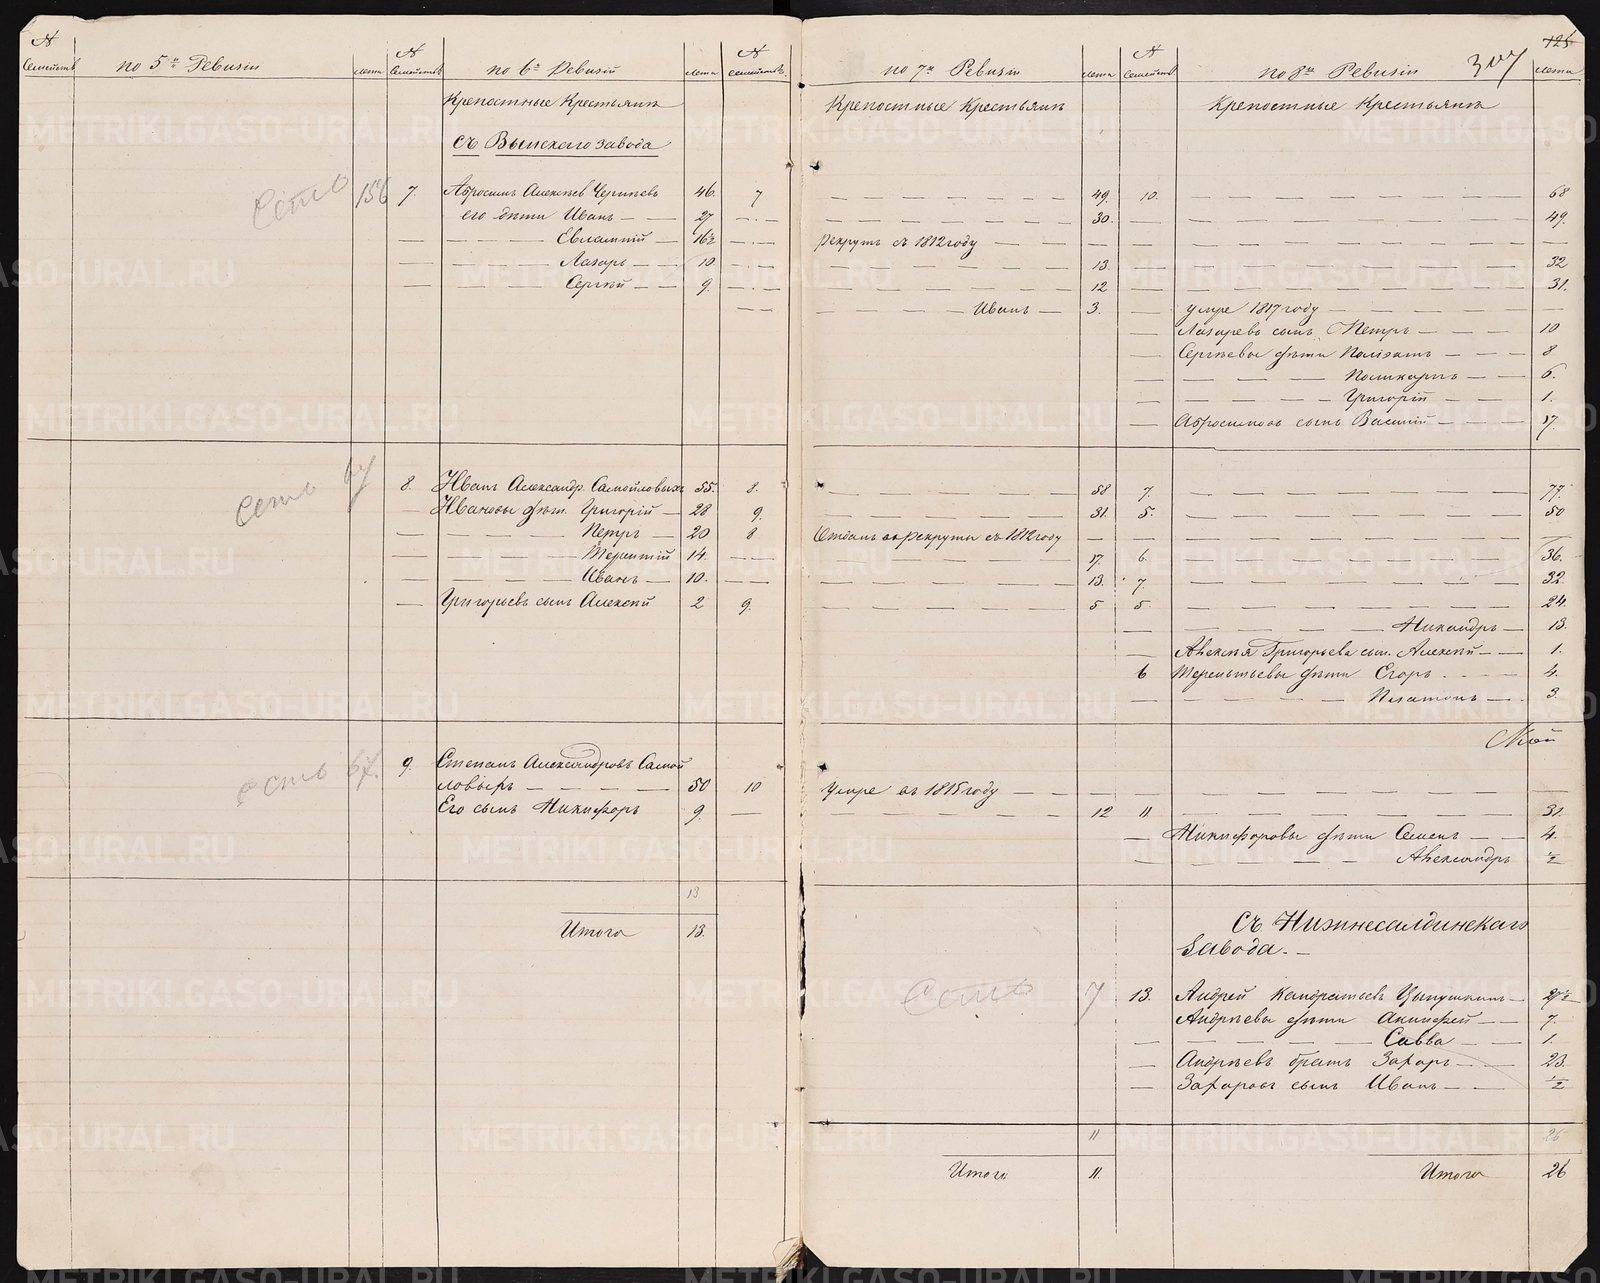 № семействъ
по 5й Ревизіи
лета
№ семействъ
по 6й Ревизіи
лета
№ семействъ
по 7й Ревизіи
лета
№ семействъ
по 8й Ревизіи
лета
125
307
Крепостные Крестьяне
съ Выйскаго завода
Крепостные Крестьяне
Крепостные Крестьяне
есть 156 7. Абросимъ Алексѣевъ 46. 7 — 49. 10. — 68
его дѣти Иванъ — 27 — 30. — 49.
— Евлампій — 16½ — рекрутъ съ 1812 году —
— Лазарь — 10 — 13. — 32
— Сергѣй — 9. — 12 — 31.
— Иванъ — 3. — умре 1817 году —
— Лазаревъ сынъ Петръ — 10
— Сергѣевы дѣти — 8
— Поликарпъ — 6.
— Григорій — 1.
— Абросимовъ сынъ Василій — 17.
есть 67 8. Иванъ Александр. Самойловыхъ 55. 8. — 58 7. — 77.
— Ивановы дѣт. Григорій — 28 9. — 31. 5. — 50
— Петръ — 20 8 Отданъ въ Рекруты съ 1812 году —
— Терентій 14. — 17. 6. — 36.
— Иванъ — 10. — 13. 7. — 32.
— Григорьевъ сынъ Алексѣй 2 9. — 5 5. — 24.
— Никандръ — 13.
— Алексѣя Григорьева сын. Алексѣй — 1.
6 Терентьевы дѣти Егоръ — 4.
— Платонъ — 3.
есть 67. 9. Степанъ Александровъ Самой
ловыхъ — 50 10 умре въ 1815 году —
Его сынъ Никифоръ 9. — 12 11. — 31.
— Никифоровы дѣти Семенъ — 4.
— Александръ ½
13
Итого 13.
Съ Нижнесалдинскаго
завода. —
есть 7 13. Андрей Кандратьевъ — 27½
Андрѣевы дѣти Акинфей — 7.
— Савва — 1.
— Андрѣевъ братъ Захаръ — 23.
— Захаровъ сынъ Иванъ — ½
11
26
Итого 11.
Итого 26
METRIKI.GASO-URAL.RU